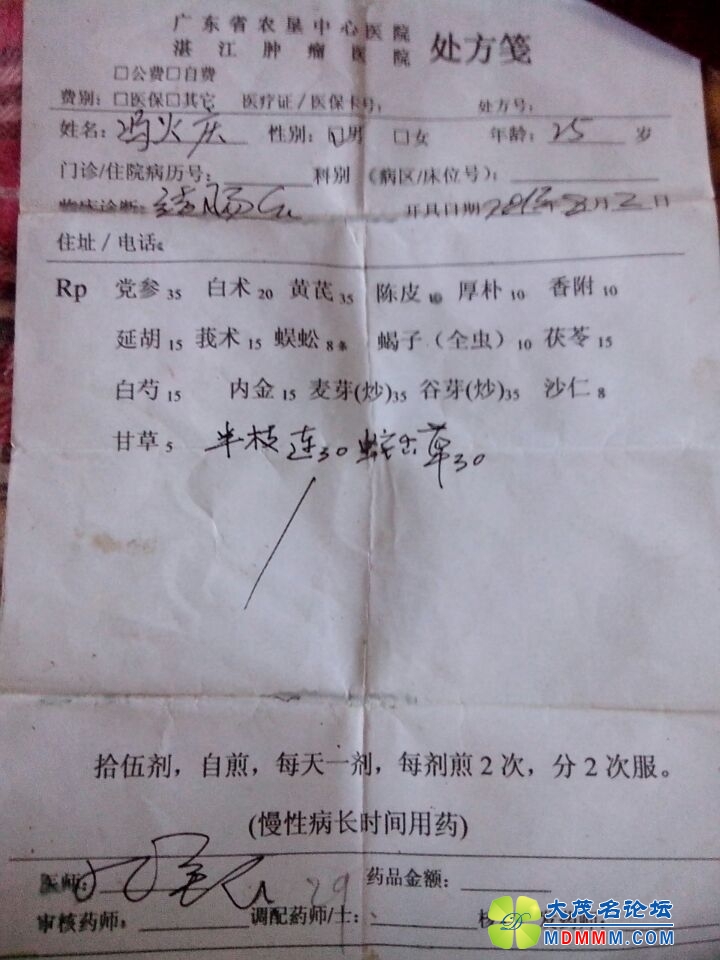 广东省农垦中心医院
湛江肿瘤医院 处方笺
□公费□自费
费别:□医保□其它 医疗证/医保卡号: 处方号:
姓名:冯火庆 性别:□男 □女 年龄:25 岁
门诊/住院病历号: 科别 (病区/床位号):
临床诊断:结肠Ca 开具日期 年8月2日
住址/电话:
Rp 党参35 白术20 黄芪35 陈皮10 厚朴10 香附10
延胡15 莪术15 蜈蚣8条 蝎子(全虫)10 茯苓15
白芍15 内金15 麦芽(炒)35 谷芽(炒)35 沙仁8
甘草5 半枝连30 蛇舌草30
拾伍剂,自煎,每天一剂,每剂煎2次,分2次服。
(慢性病长时间用药)
医师: 29 药品金额:
审核药师: 调配药师/士: 核
大茂名论坛
MDMMM.COM